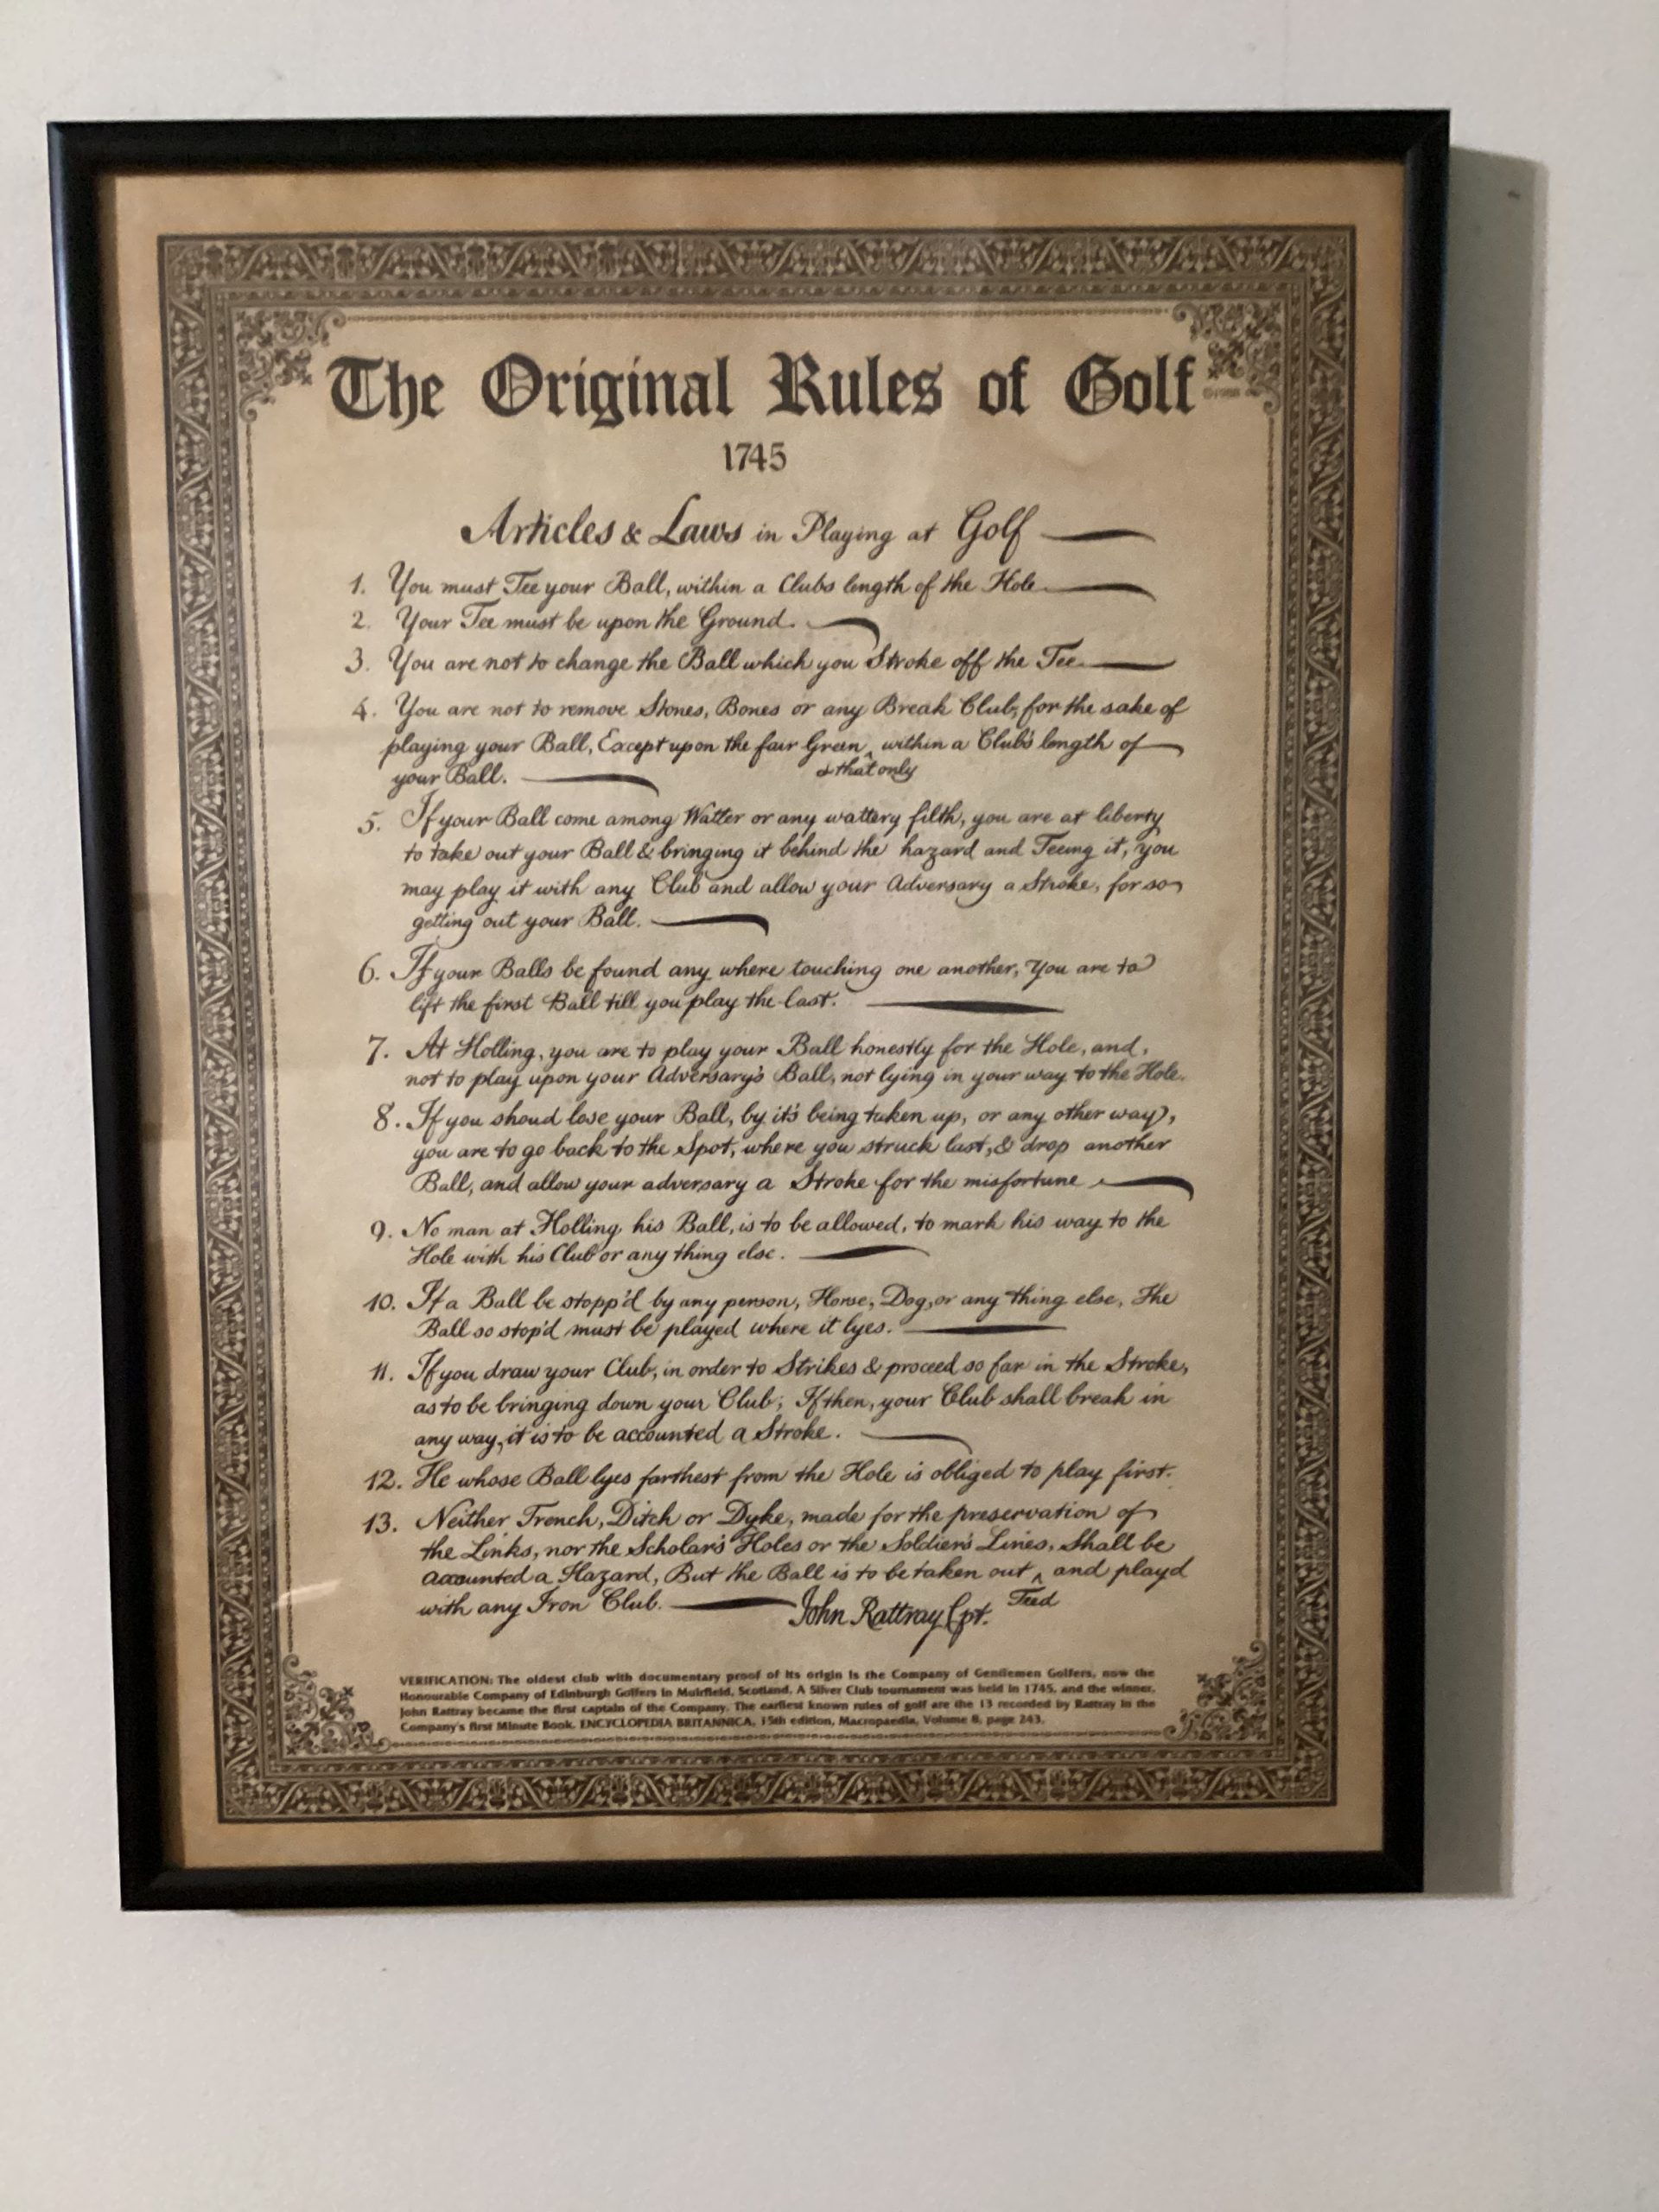 The Original Rules of Golf
1745
Articles & Laws in Playing at Golf
1. You must Tee your Ball, within a Clubs length of the Hole
2. Your Tee must be upon the Ground.
3. You are not to change the Ball which you Stroke off the Tee
4. You are not to remove Stones, Bones or any Break Club, for the sake of
playing your Ball, Except upon the fair Green ‸ within a Club's length of
& that only
your Ball.
5. If your Ball come among Watter or any wattery filth, you are at liberty
to take out your Ball & bringing it behind the hazard and Teeing it, you
may play it with any Club and allow your Adversary a Stroke, for so
getting out your Ball.
6. If your Balls be found any where touching one another, You are to
lift the first Ball till you play the last.
7. At Holling, you are to play your Ball honestly for the Hole, and,
not to play upon your Adversary's Ball, not lying in your way to the Hole.
8. If you shoud lose your Ball, by it's being taken up, or any other way,
you are to go back to the Spot, where you struck last, & drop another
Ball, and allow your adversary a Stroke for the misfortune
9. No man at Holling his Ball, is to be allowed, to mark his way to the
Hole with his Club or any thing else.
10. If a Ball be stopp'd by any person, Horse, Dog, or any thing else, The
Ball so stop'd must be played where it lyes.
11. If you draw your Club, in order to Strikes & proceed so far in the Stroke,
as to be bringing down your Club; If then, your Club shall break in
any way, it is to be accounted a Stroke.
12. He whose Ball lyes farthest from the Hole is obliged to play first.
13. Neither Trench, Ditch or Dyke, made for the preservation of
the Links, nor the Scholar's Holes or the Soldier's Lines, Shall be
accounted a Hazard, But the Ball is to be taken out ‸ and playd
Teed
with any Iron Club. John Rattray Cpt.
VERIFICATION: The oldest club with documentary proof of its origin is the Company of Gentlemen Golfers, now the
Honourable Company of Edinburgh Golfers in Muirfield, Scotland. A Silver Club tournament was held in 1745, and the winner,
John Rattray became the first captain of the Company. The earliest known rules of golf are the 13 recorded by Rattray in the
Company's first Minute Book. ENCYCLOPEDIA BRITANNICA, 15th edition, Macropaedia, Volume 8, page 243.